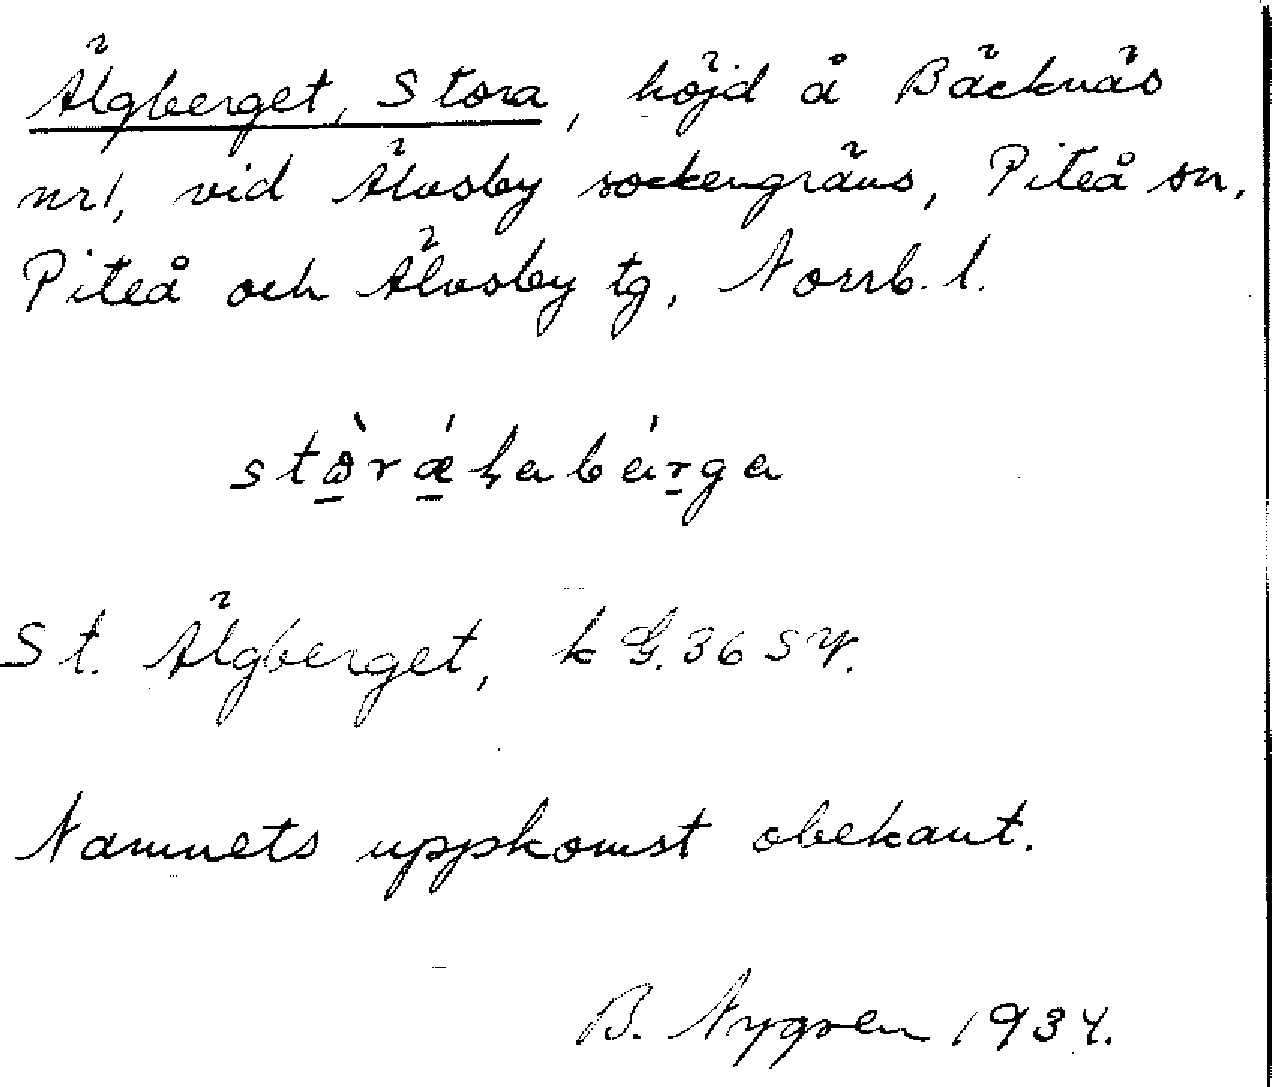 Älgberget, Stora, höjd å Bäcknäs
nr 1, vid Älvsby sockengräns, Piteå sn,
Piteå och Älvsby tg, Norrb. l.
St. Älgberget, k G. 36 SV.
Namnets uppkomst obekant.
B. Nygren 1934.